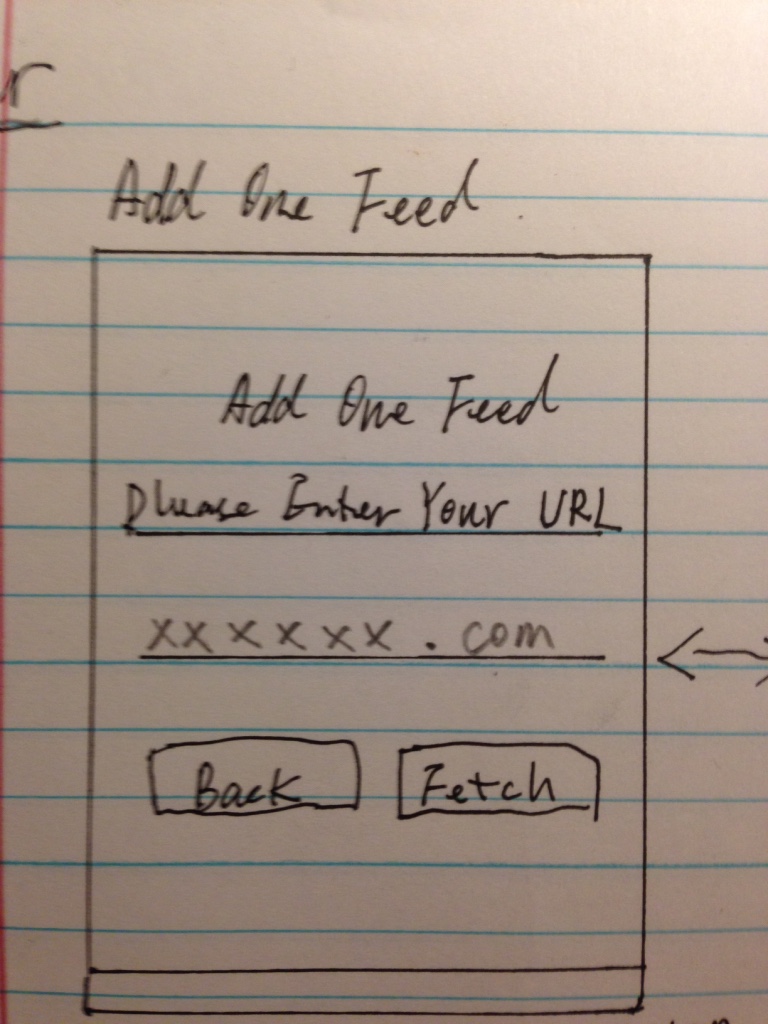 r
Add One Feed
Add One Feed
Pluease Enter Your URL
xxxxxx.com
Back
Fetch